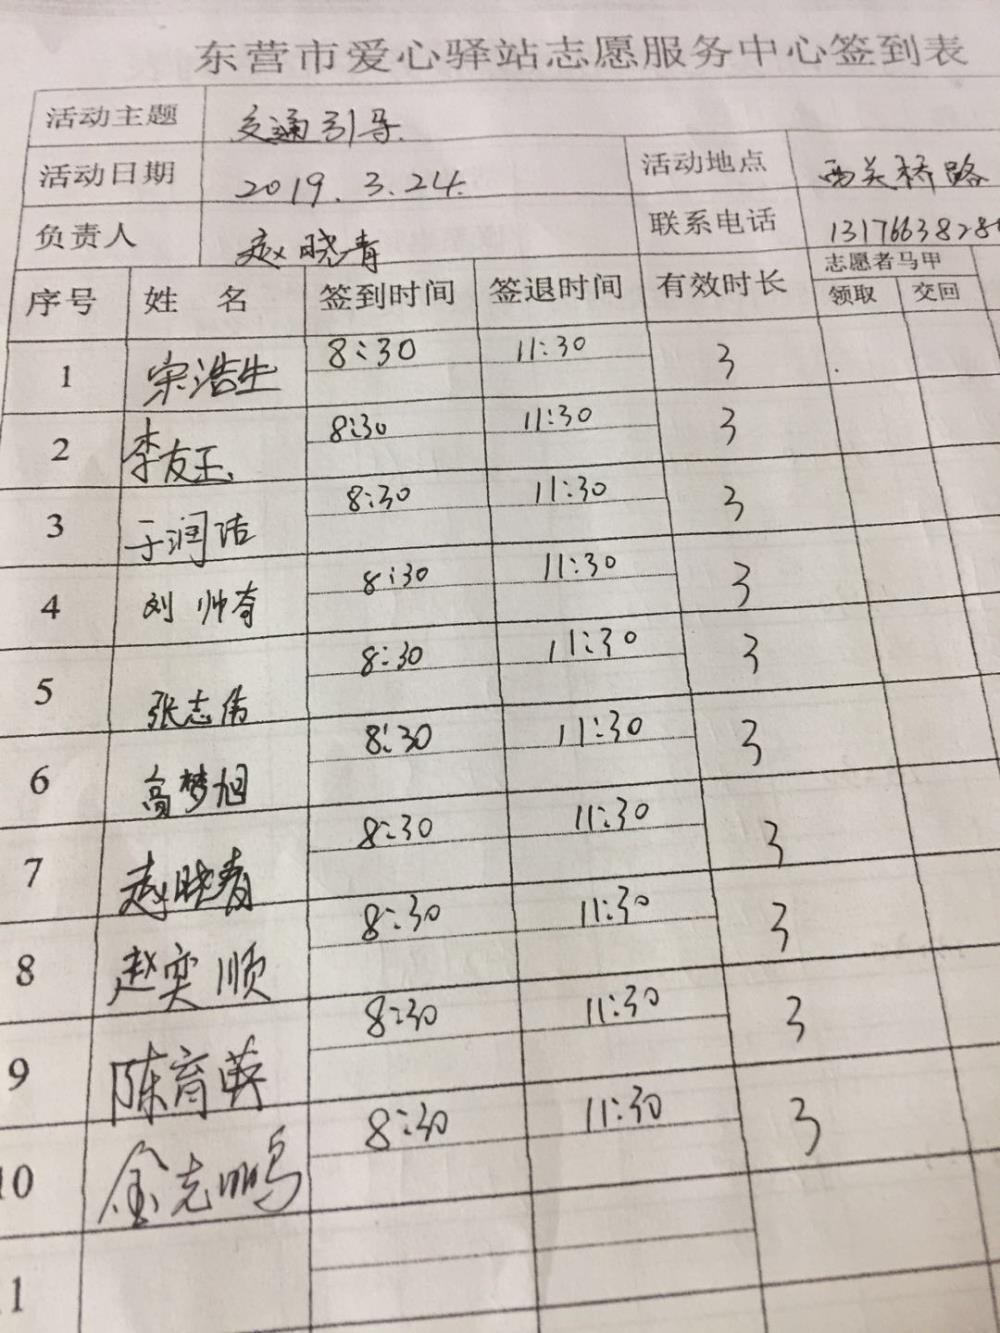 东营市爱心驿站志愿服务中心签到表
活动主题 交通引导
活动日期 2019.3.24. 活动地点 西关桥路
负责人 赵晓青 联系电话 1317663828
序号 姓 名 签到时间 签退时间 有效时长 志愿者马甲
领取 交回
1 宋浩生 8:30 11:30 3
2 李友玉 8:30 11:30 3
3 于润洁 8:30 11:30 3
4 刘帅奇 8:30 11:30 3
5 张志伟 8:30 11:30 3
6 高梦旭 8:30 11:30 3
7 赵晓青 8:30 11:30 3
8 赵奕顺 8:30 11:30 3
9 陈育 8:30 11:30 3
10 金克鹏 8:30 11:30 3
11